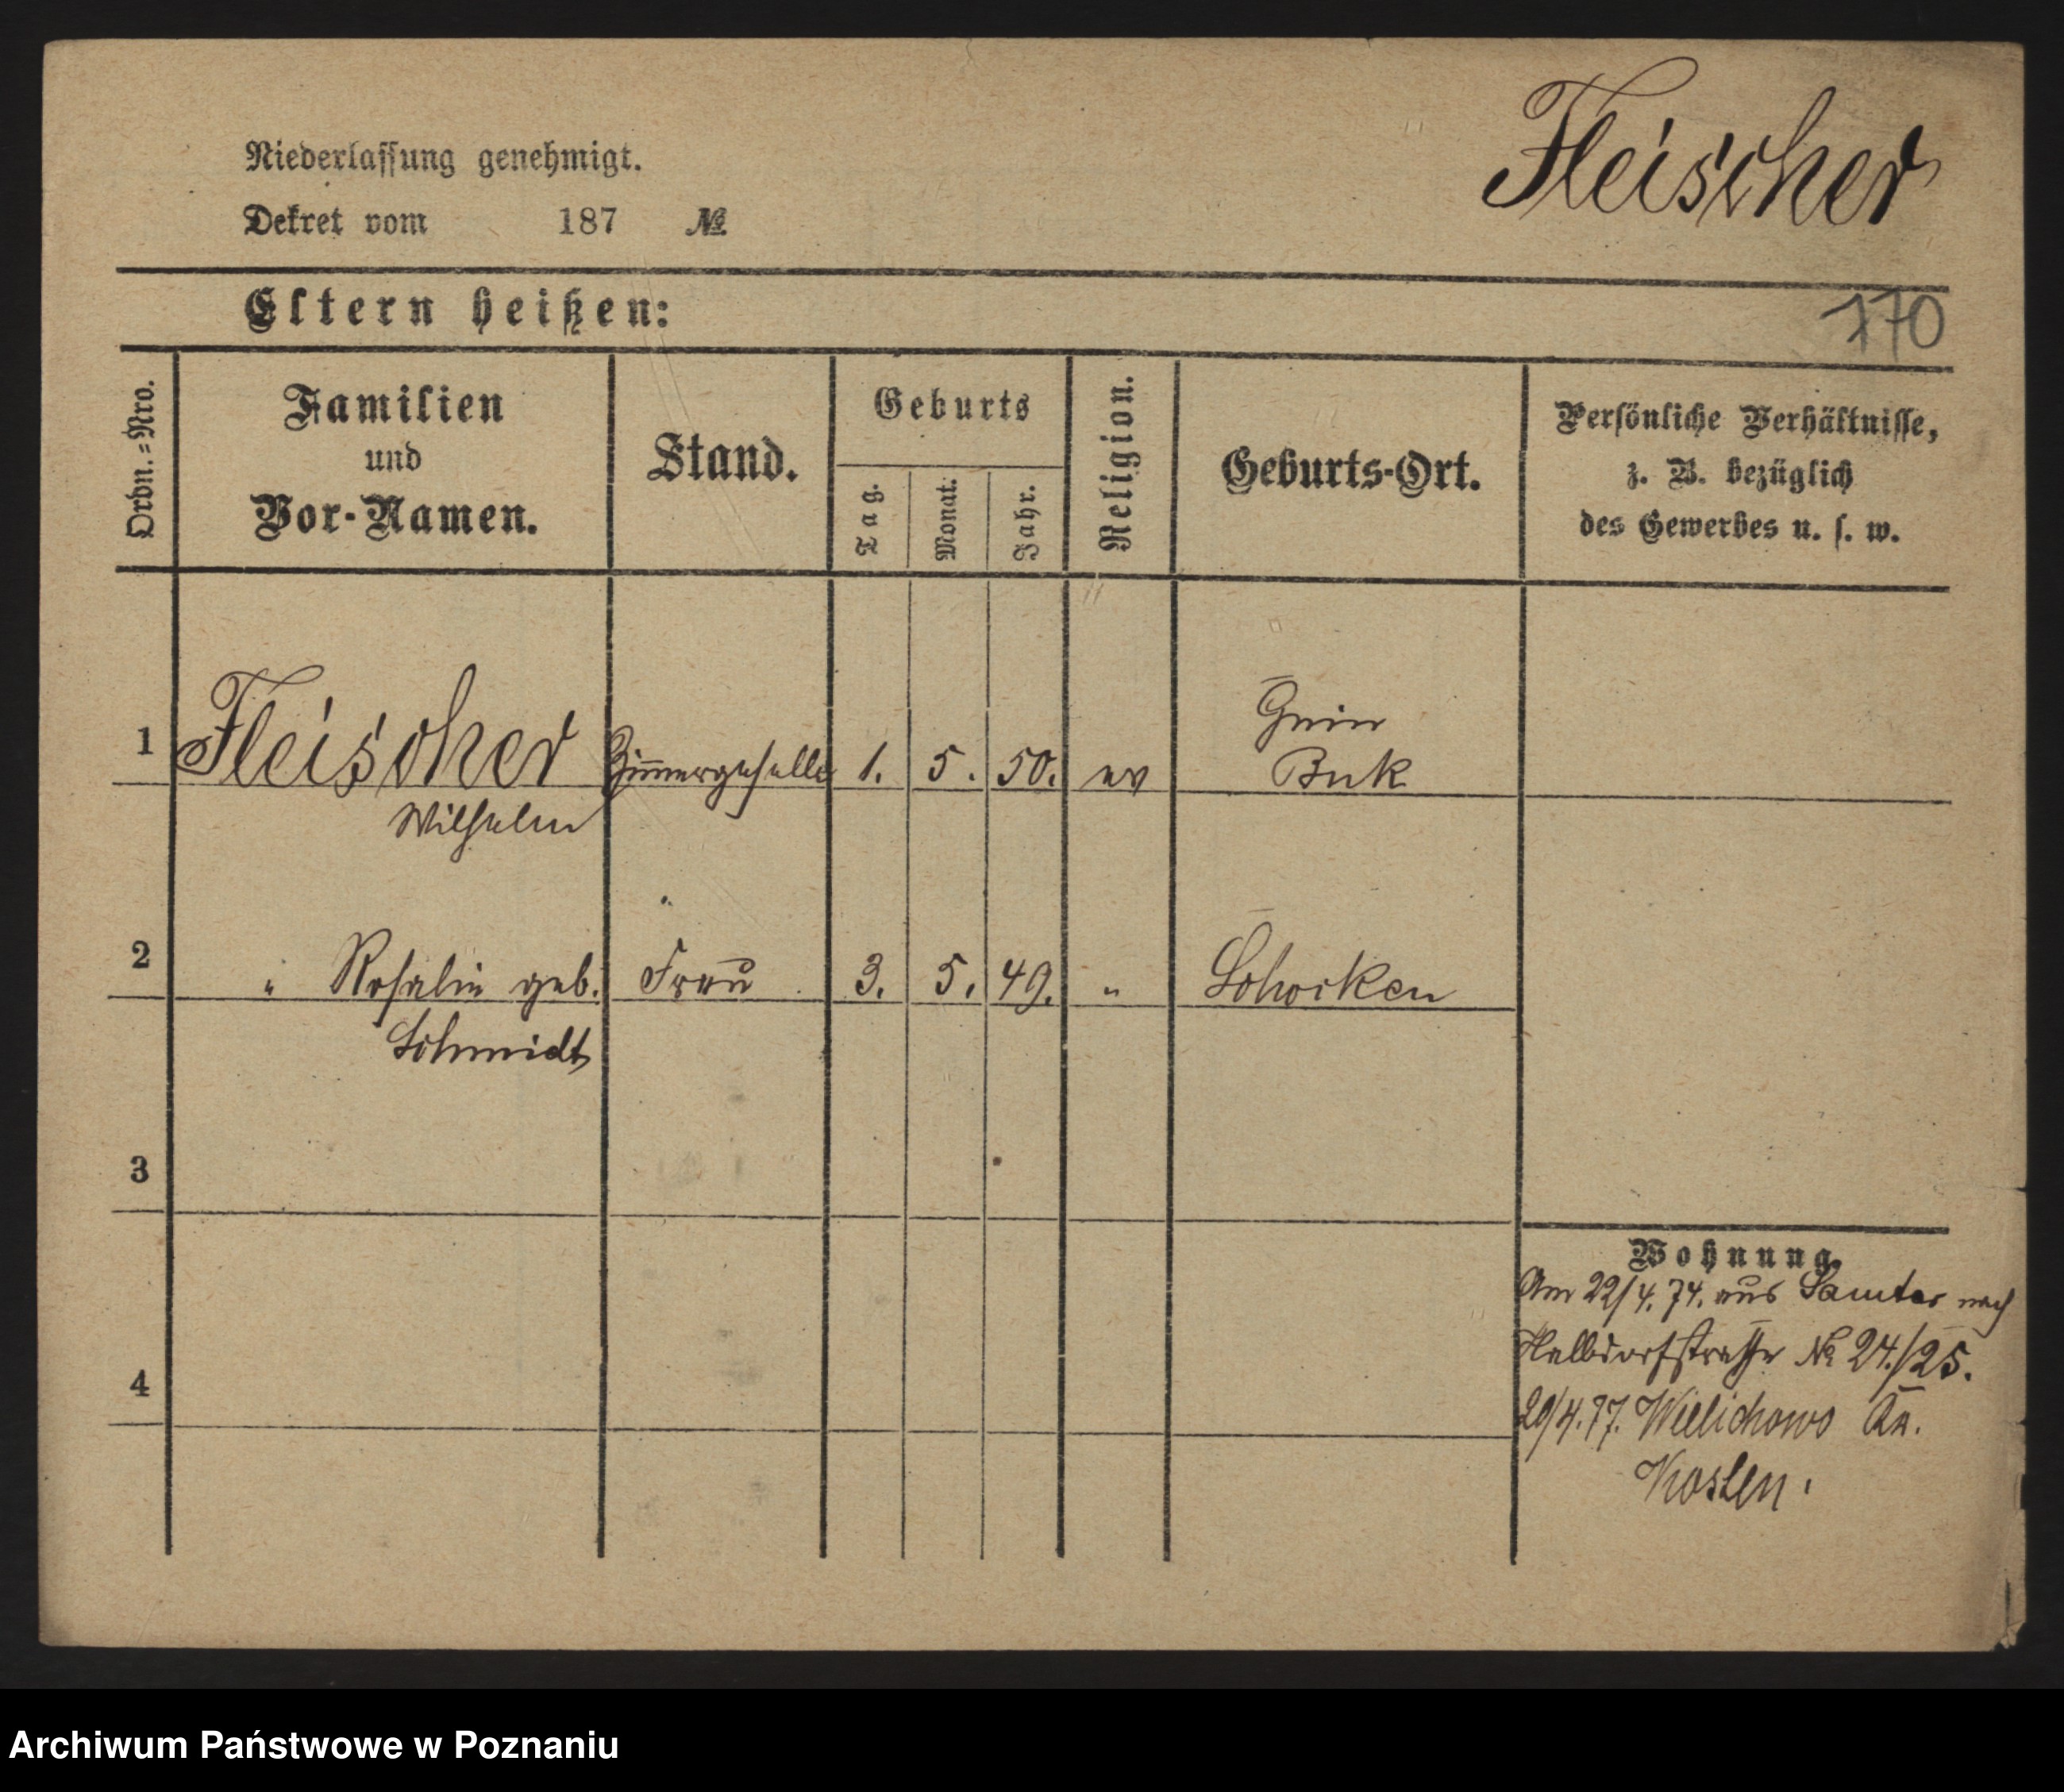 Fleischer
Niederlassung genehmigt.
Dekret vom 187 №
Eltern heißen:
170
Ordn.=Nro.
Familien
und
Vor-Namen.
Stand.
Geburts
Tag.
Monat.
Jahr.
Religion.
Geburts-Ort.
Persönliche Verhältnisse,
z. B. bezüglich
des Gewerbes u. s. w.
1 Fleischer Zimmergeselle 1. 5. 50. ev
Buk
Wilhelm
2 " Rosalie geb. Frau 3. 5. 49. " Schocken
Schmidt
3
4
Wohnung.
Am 22/4. 74. aus Samter nach
Halbdorfstraße № 24./25.
29/4. 77. Wielichowo Kr.
Kosten.
Archiwum Państwowe w Poznaniu